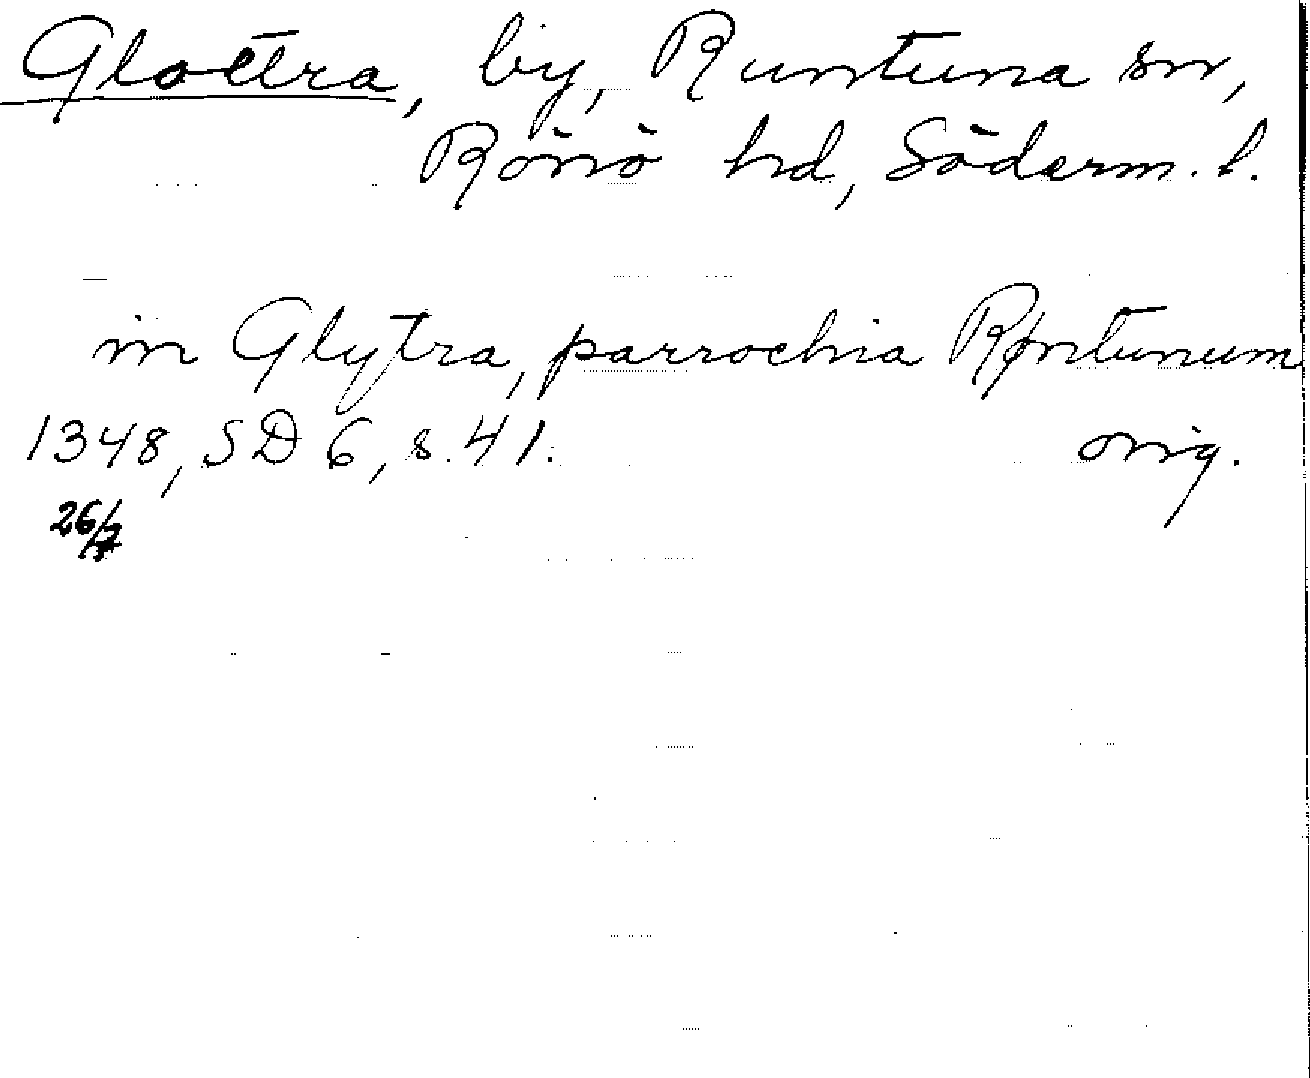 Glottra, by, Runtuna sn,
Rönö hd, Söderm. l.
in Glytra, parrochia Røntunum
1348, SD 6, s. 41. orig.
26/7